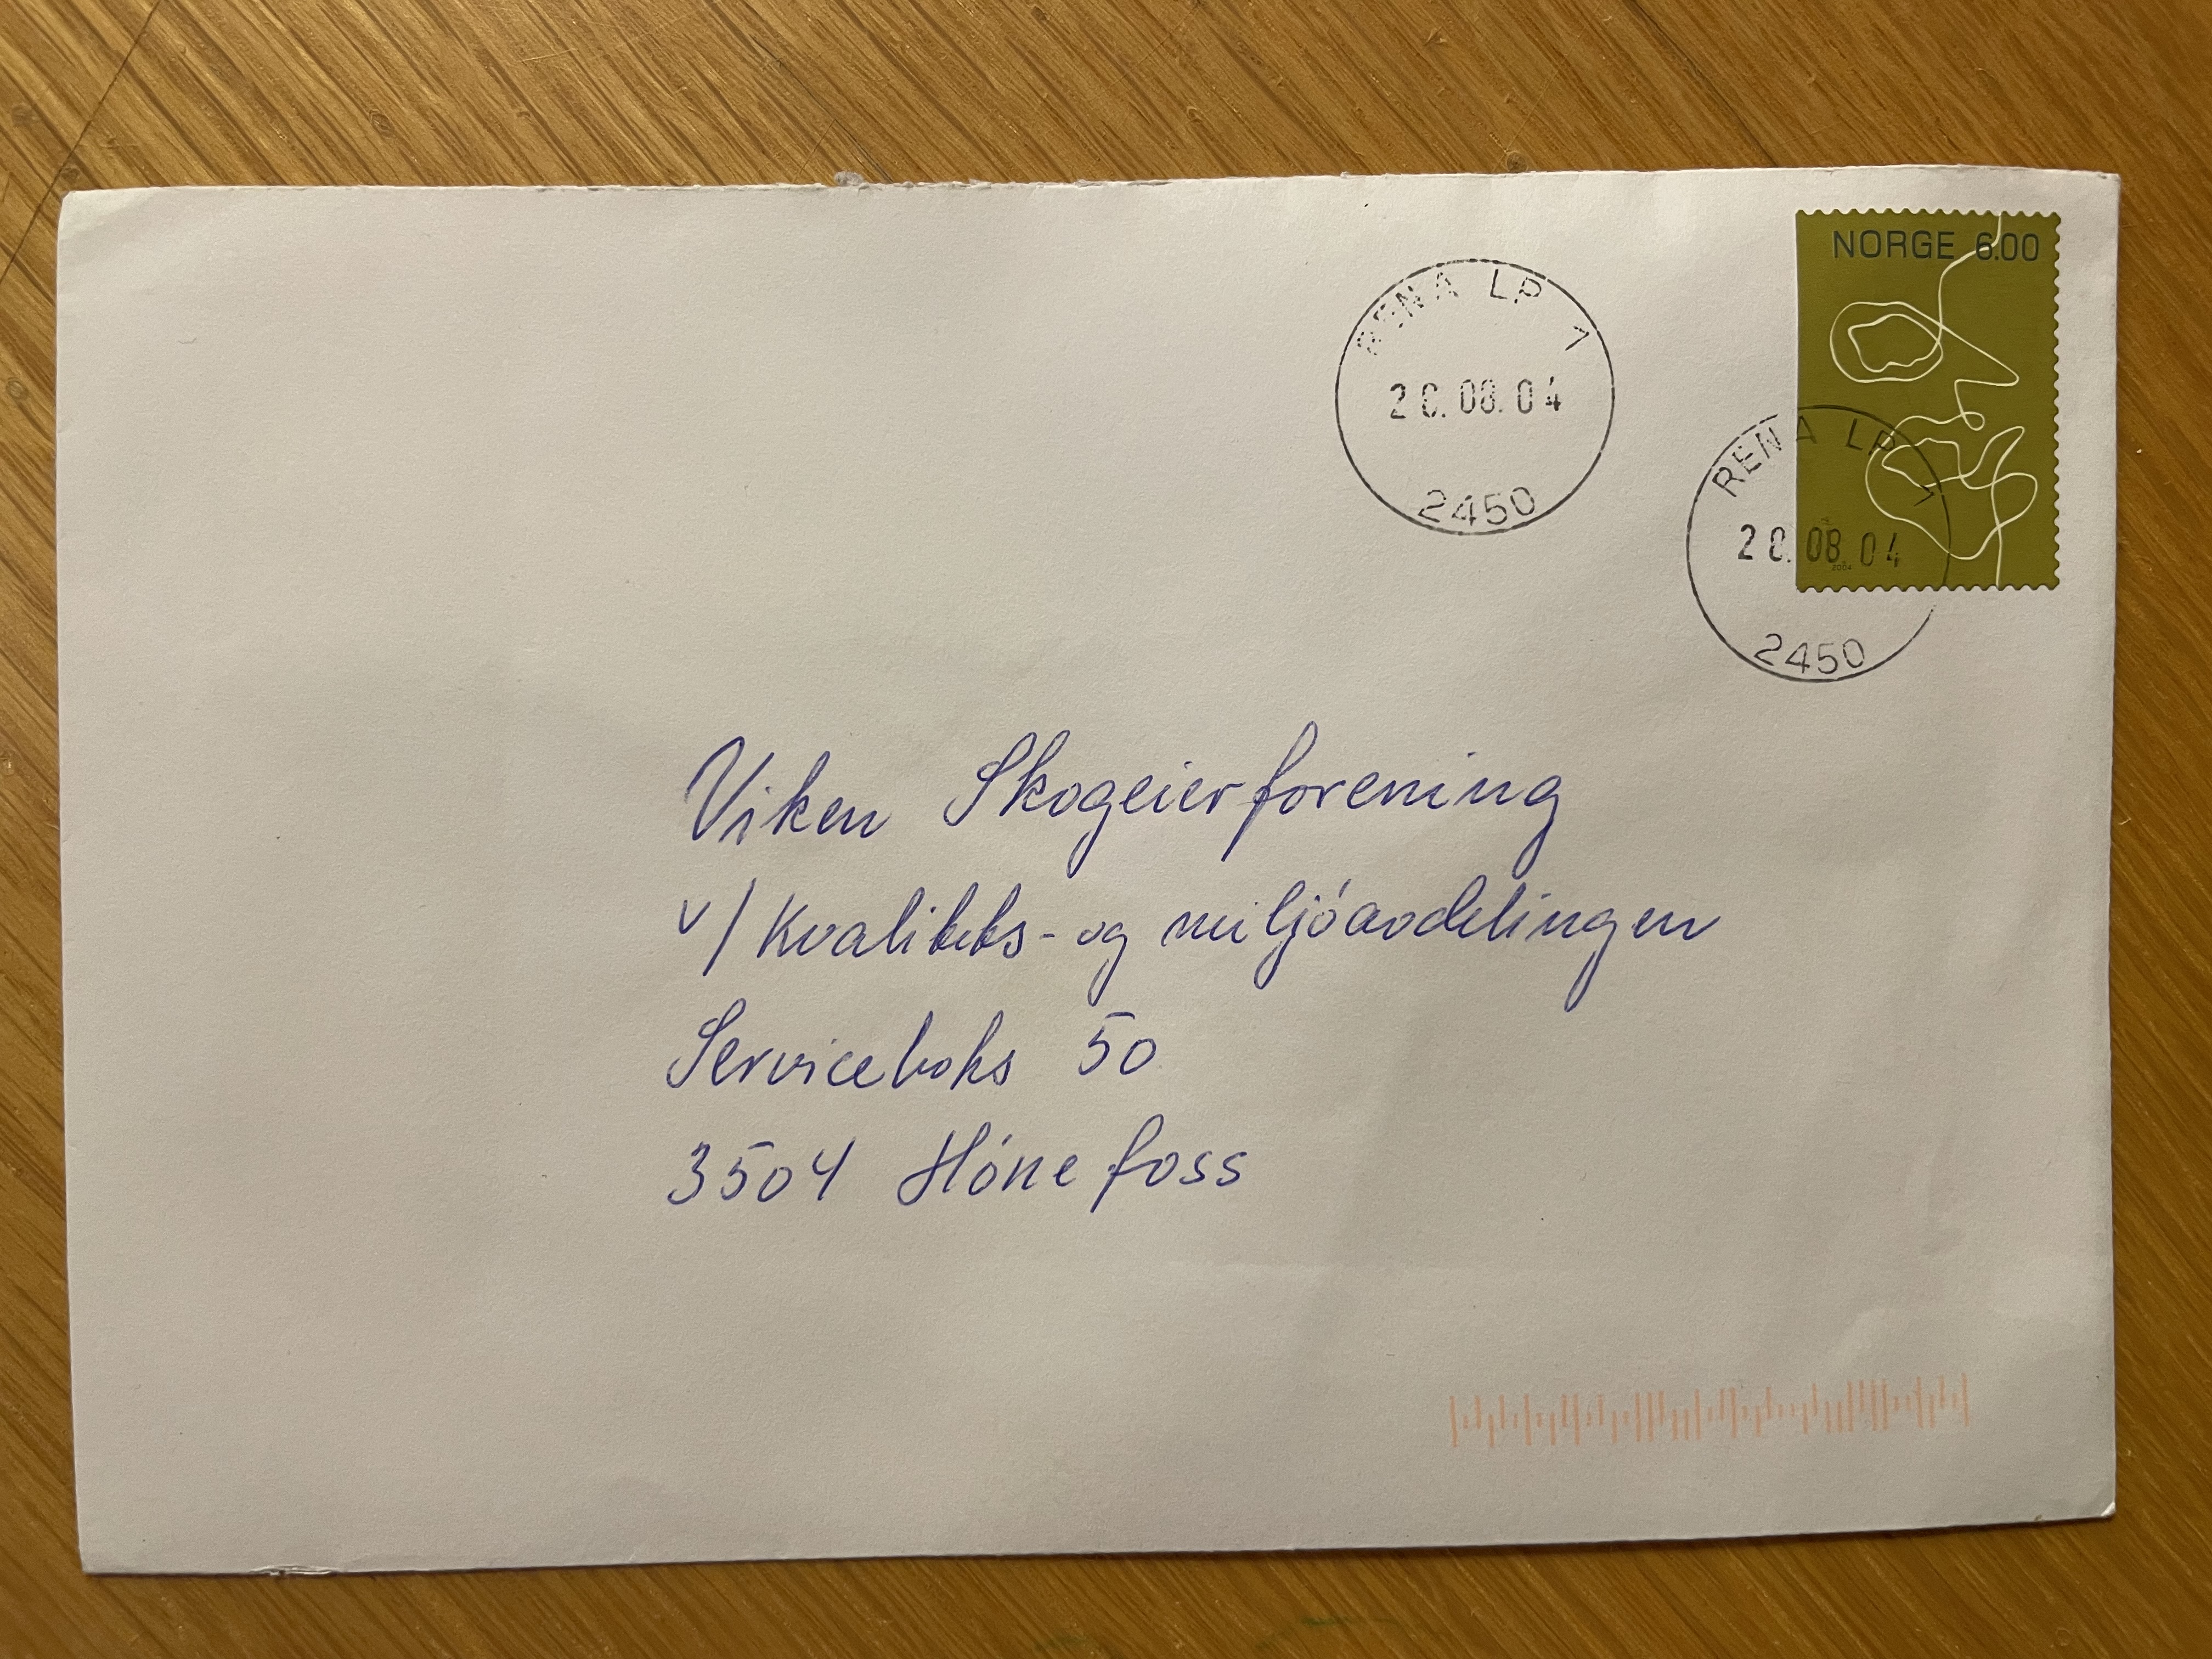 NORGE 6.00
RENA LP 1
20.08.04
2450
RENA LP 1
20.08.04
2450
2004
Viken Skogeierforening
v/ Kvalitets- og miljóavdelingen
Serviceboks 50
3504 Hónefoss